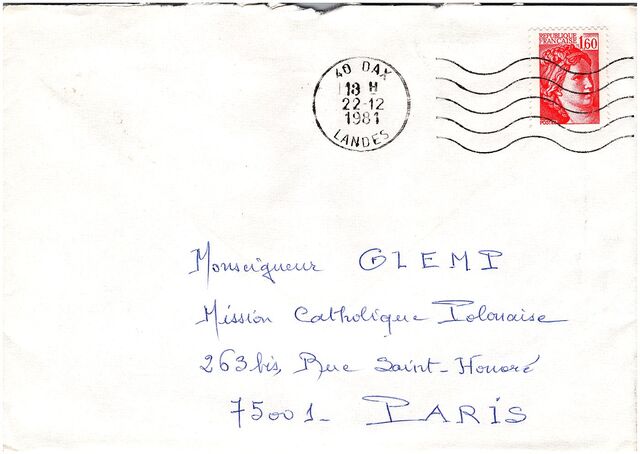 REPUBLIQUE
FRANÇAISE 1,60
40 DAX
18 H
22-12
1981
LANDES
Monseigneur GLEMP
Mission Catholique Polonaise
263 bis, Rue Saint-Honoré
75001_ PARIS